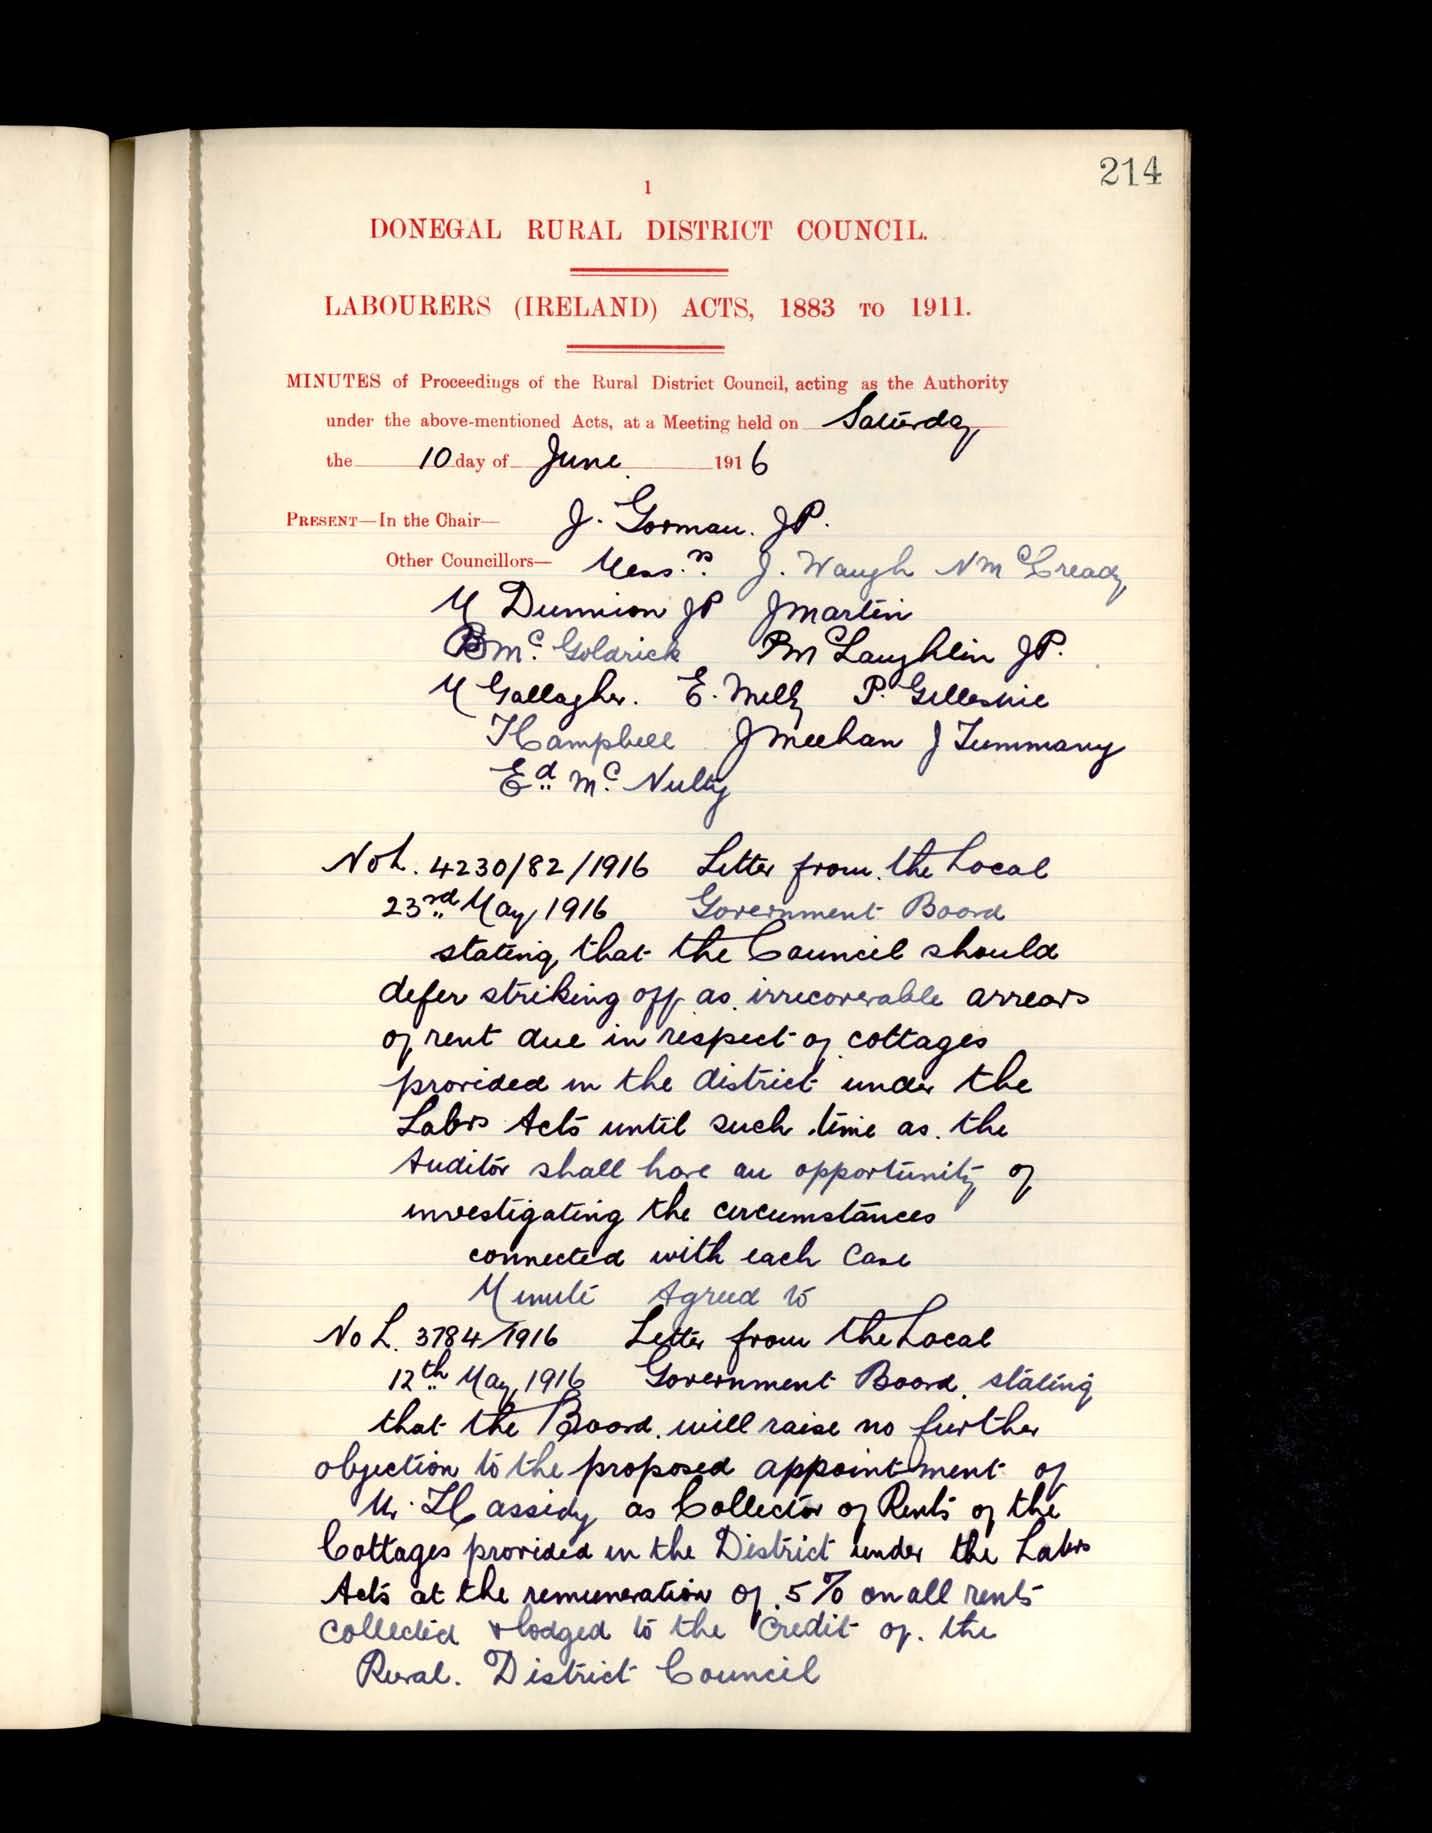 214
1
DONEGAL RURAL DISTRICT COUNCIL.
LABOURERS (IRELAND) ACTS, 1883 TO 1911.
MINUTES of Proceedings of the Rural District Council, acting as the Authority
under the above-mentioned Acts, at a Meeting held on Saturday
the 10 day of June 1916
PRESENT—In the Chair— J. Gorman. JP.
Other Councillors— Mess.rs J. Waugh N McCready
M Dunnion JP J Martin
B Mc. Goldrick P McLaughlin JP.
M Gallagher. E. Melly P. Gillespie
T Campbell J Meehan J Timmany
Ed Mc. Nulty
No L. 4230/82/1916 Letter from the Local
23rd May 1916 Government Board
stating that the Council should
defer striking off as irrecoverable arrears
of rent due in respect of cottages
provided in the district under the
Labrs Acts until such time as the
Auditor shall have an opportunity of
investigating the circumstances
connected with each case
Minute Agreed to
No L. 3784/1916 Letter from the Local
12th May 1916 Government Board stating
that the Board will raise no further
objection to the proposed appointment of
Mr. H Cassidy as Collector of Rents of the
Cottages provided in the District under the Labrs
Acts at the remuneration of 5% on all rents
collected & lodged to the credit of the
Rural. District Council